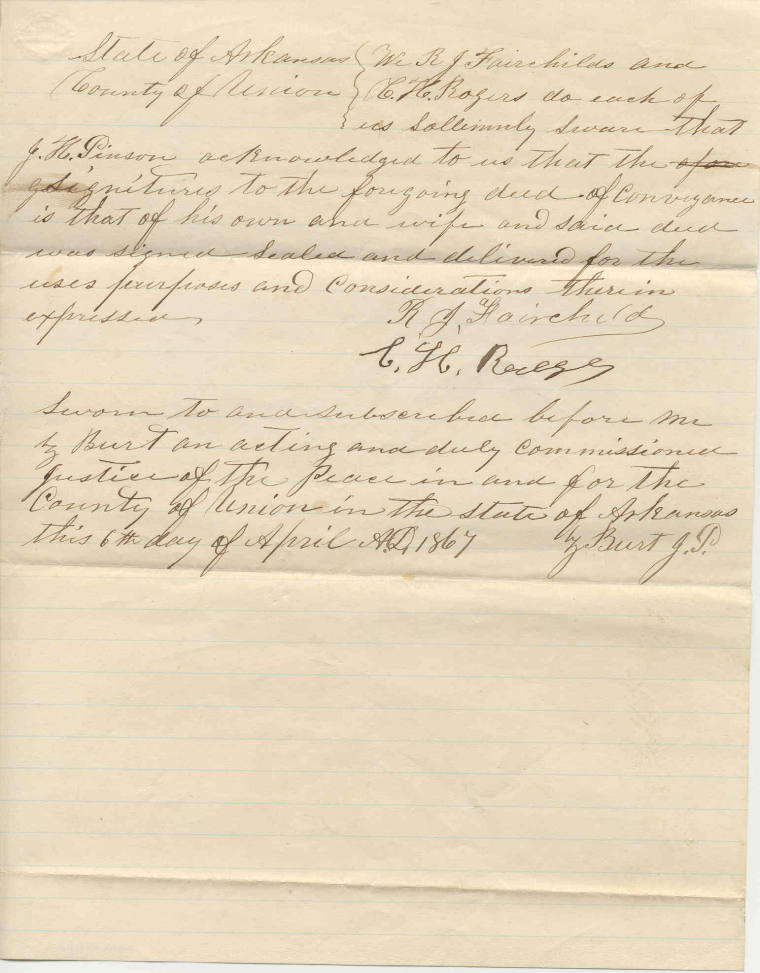 State of Arkansas { We R J Fairchilds and
County of Union { C. H. Rogers do each of
us Sollimnly Sware that
J. H. Pinson acknowledged to us that the
signitures to the foregoing deed of Conveyance
is that of his own and wife and said deed
was signed Sealed and delivered for the
uses purposes and Considerations therein
expressed
R J Fairchild
C. H.
Sworn to and subscribed before me
Burt an acting and duly Commissioned
Justice of the Peace in and for the
County of Union in the state of Arkansas
this 6th day of April A.D. 1867 Burt J.P.